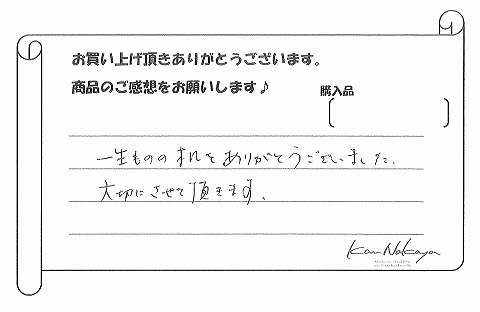 お買い上げ頂きありがとうございます。
商品のご感想をお願いします♪
購入品
一生ものの机をありがとうございました。
大切にさせて頂きます。
Kan Nakaya